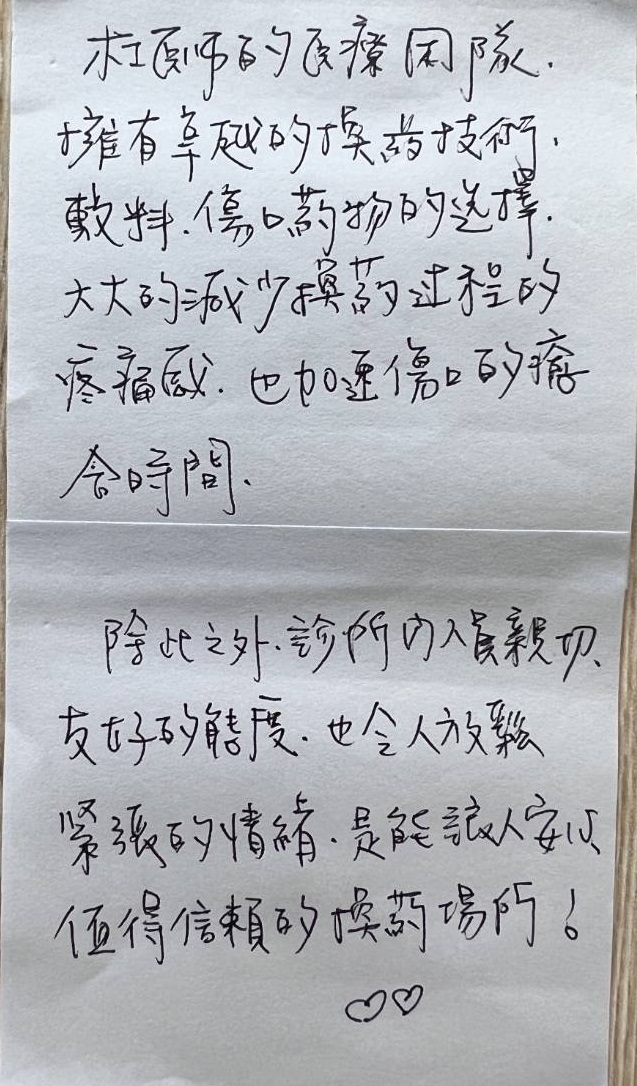 杜医师的医療团隊.
擁有卓越的換药技術,
敷料.傷口药物的选擇.
大大的減少換药过程的
疼痛感.也加速傷口的癒
合時間.
除此之外.診所内人員親切、
友好的態度.也令人放鬆
緊張的情緒.是能讓人安心、
值得信賴的換药場所!